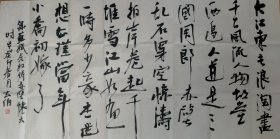 大江東去浪淘盡
千古風流人物故壘
西邊人道是三
國周郎赤壁
亂石穿空驚濤
拍岸卷起千
堆雪江山如畫
一時多少豪杰遥
想公瑾當年
小喬初嫁了